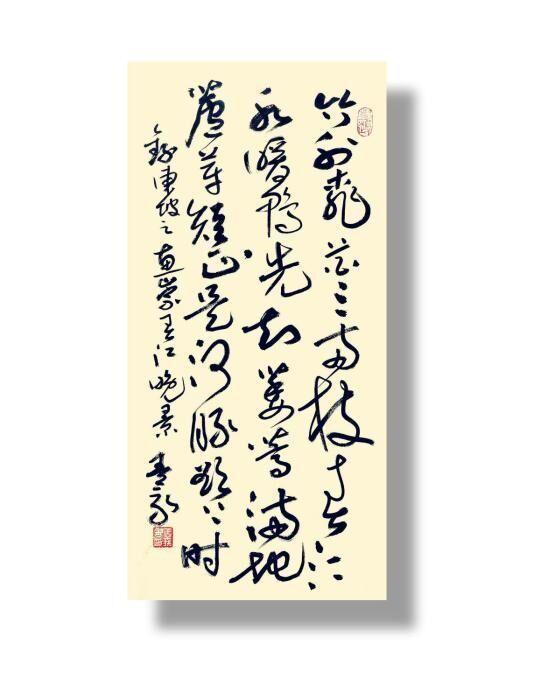 竹外桃花三两枝春江
水暖鸭先知蒌蒿满地
蘆芽短正是河豚欲上时
録東坡之惠崇春江晚景